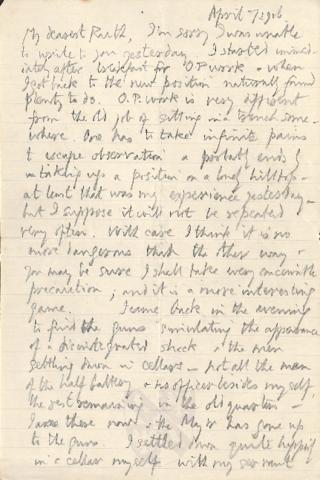 April 7 1916.
My dearest Ruth, I'm sorry I was unable
to write to you yesterday. I started immed-
iately after breakfast for O.P. work & when
I got back to the new position naturally found
plenty to do. O.P. work is very different
from the old job of sitting in a trench some-
where. One has to take infinite pains
to escape observation & probably ends by
taking up a position on a long hilltop -
at least that was my experience yesterday -
but I suppose it will not be repeated
very often. With care I think it is no
more dangerous than the other way -
you may be sure I shall take every conceivable
precaution; and it is a more interesting
game. I came back in the evening
to find the guns simulating the appearance
of a disintegrated shack & the men
settling down in cellars - not all the men
of the half battery & no officer besides myself,
the rest remaining in the old quarters -
I was there now & the Major has gone up
to the guns. I settled down quite happily
in a cellar myself with my servant